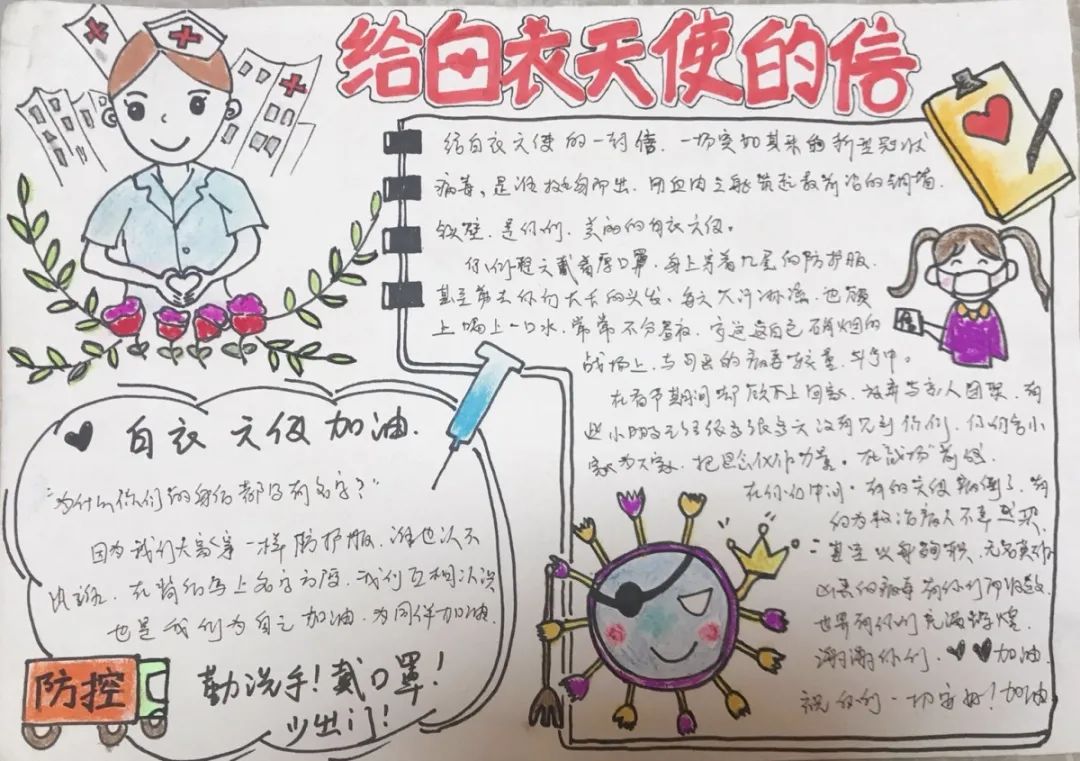 给白衣天使的信
给白衣天使的一封信，一场突如其来的新型冠状
病毒，是谁挺身而出，用血肉之躯筑起救治的铜墙
铁壁，是你们，美丽的白衣天使。
你们整天戴着厚口罩，身上穿着几层的防护服，
甚至剪去你们大大的头发，每天大汗淋漓，也顾
上喝上一口水，常常不分昼夜，
战场上，与可恶的病毒较量，斗争中。
在春节期间却放下上回家，放弃与家人团聚，有
些小朋友已经很多很多天没有见到你们，你们舍小
家为大家，把思念化作力量。在战场前线
在你们中间，有的天使病倒了，有
的为救治病人不幸感染，
甚至以身殉职，无名英雄
凶恶的病毒有你们而
世界有你们充满辉煌
谢谢你们，加油，
祝你们一切安好！加油
信
白衣天使加油.
"为什么你们的身后都写有名字？"
因为我们大家穿一样防护服，谁也认不
出谁，在背后写上名字之后，我们互相认识
也是我们为自己加油，为同伴加油
防控
勤洗手！戴口罩！
少出门！